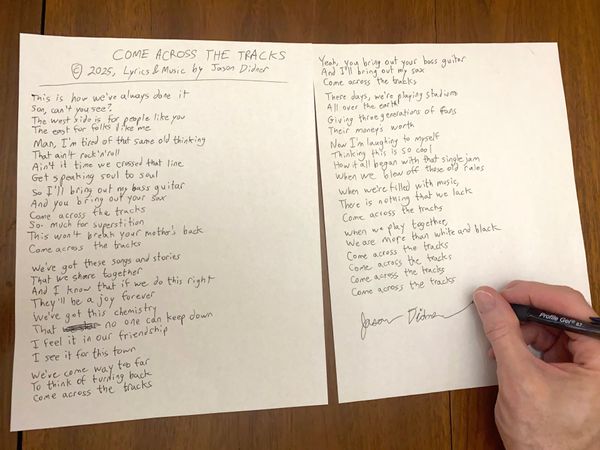 COME ACROSS THE TRACKS
© 2025, Lyrics & Music by Jason Didner
This is how we've always done it
Son, can't you see?
The west side is for people like you
The east for folks like me
Man, I'm tired of that same old thinking
That ain't rock'n'roll
Ain't it time we crossed that line
Get speaking soul to soul
So I'll bring out my bass guitar
And you bring out your sax
Come across the tracks
So much for superstition
This won't break your mother's back
Come across the tracks
We've got these songs and stories
That we share together
And I know that if we do this right
They'll be a joy forever
We've got this chemistry
That no one can keep down
I feel it in our friendship
I see it for this town
We've come way too far
To think of turning back
Come across the tracks
Yeah, you bring out your bass guitar
And I'll bring out my sax
Come across the tracks
These days, we're playing stadiums
All over the earth!
Giving three generations of fans
Their money's worth
Now I'm laughing to myself
Thinking this is so cool
How it all began with that single jam
When we blew off those old rules
When we're filled with music,
There is nothing that we lack
Come across the tracks
When we play together,
We are more than white and black
Come across the tracks
Come across the tracks
Come across the tracks
Come across the tracks
Jason Didner
Profile Gel 0.7